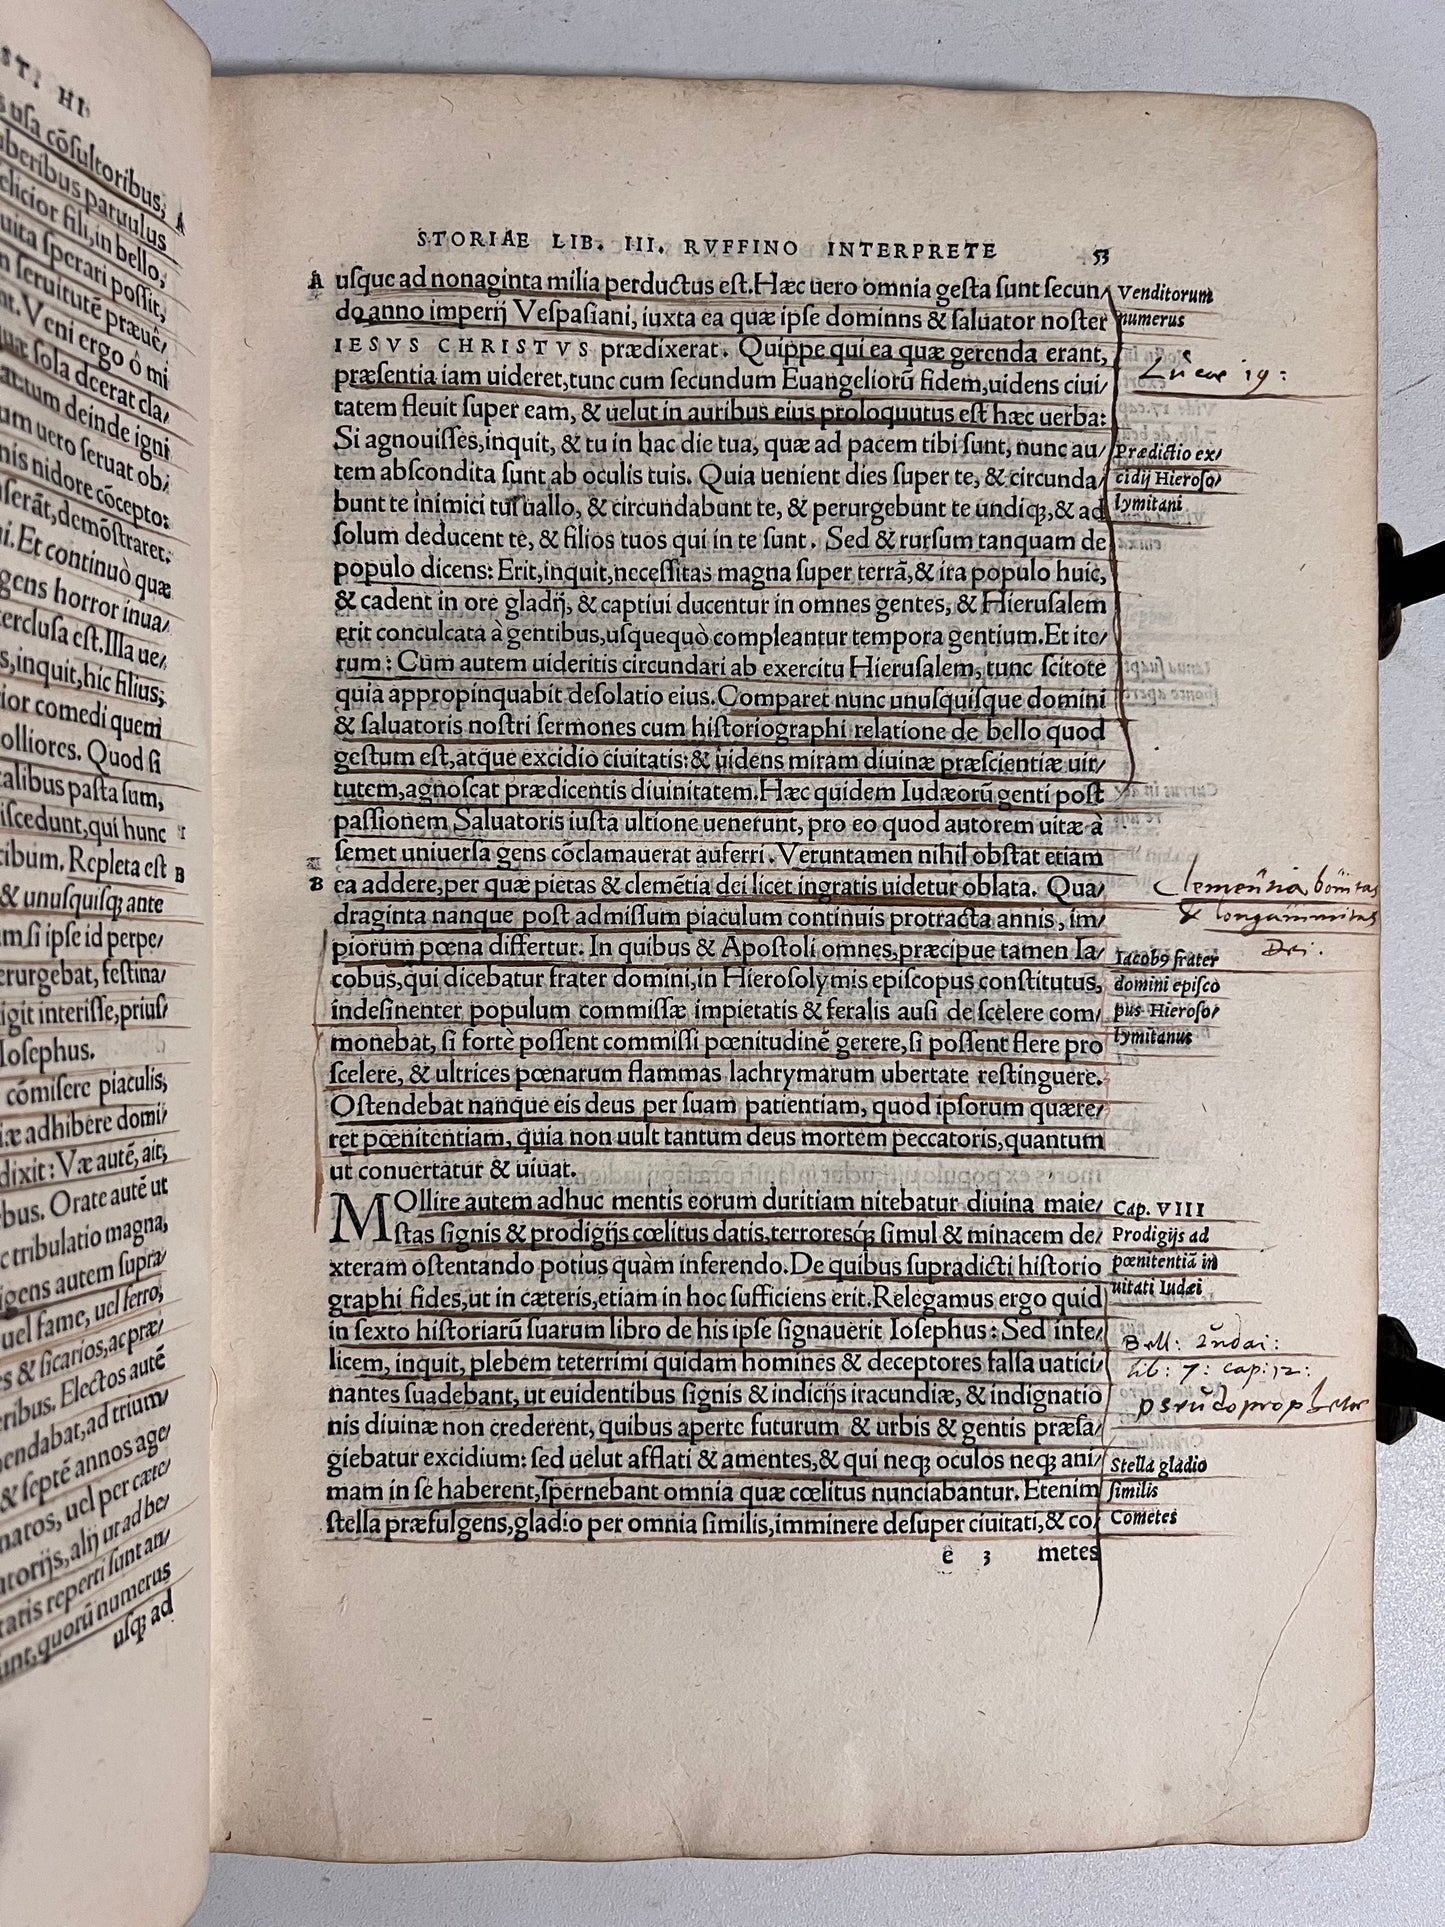 STI HI
usa cōsultoribus,
uberibus paruulus A
elicior fili, in bello,
uita sperari possit,
seruitutē præuē/
nt. Veni ergo ô mi
quæ sola deerat cla/
actum deinde igni
um uero seruat obi/
nis nidore cōceptos
serāt, demōstraret.
ni. Et continuò quæ
gens horror inua/
terclusa est. Illa ue/
s, inquit, hic filius,
ior comedi quem
olliores. Quod si
talibus pasta sum,
iscedunt, qui hunc
cibum. Repleta est B
& unusquisq; ante
m si ipse id perpe/
erurgebat, festina/
igit interisse, priusq
Iosephus.
cōmisere piaculis,
iæ adhibere domi/
dixit: Væ autē, ait,
bus. Orate autē ut
c tribulatio magna,
igens autem supra/
uel fame, uel ferro,
s & sicarios, ac præ/
eribus. Electos autē
endabat, ad trium/
& septē annos age/
natos, uel per cæte/
atorijs, alij ut ad be/
tatis reperti sunt an/
unt, quorū numerus
usq; ad
STORIAE LIB. III. RVFFINO INTERPRETE 53
A usque ad nonaginta milia perductus est. Hæc uero omnia gesta sunt secun/
do anno imperij Vespasiani, iuxta ea quæ ipse dominns & saluator noster
IESVS CHRISTVS prædixerat. Quippe qui ea quæ gerenda erant,
præsentia iam uideret, tunc cum secundum Euangeliorū fidem, uidens ciui/
tatem fleuit super eam, & uelut in auribus eius proloquutus est hæc uerba:
Si agnouisses, inquit, & tu in hac die tua, quæ ad pacem tibi sunt, nunc au/
tem abscondita sunt ab oculis tuis. Quia uenient dies super te, & circunda/
bunt te inimici tui uallo, & circundabunt te, & perurgebunt te undiq;, & ad
solum deducent te, & filios tuos qui in te sunt. Sed & rursum tanquam de
populo dicens: Erit, inquit, necessitas magna super terrā, & ira populo huic,
& cadent in ore gladij, & captiui ducentur in omnes gentes, & Hierusalem
erit conculcata à gentibus, usquequò compleantur tempora gentium. Et ite/
rum: Cum autem uideritis circundari ab exercitu Hierusalem, tunc scitote
quia appropinquabit desolatio eius. Comparet nunc unusquisque domini
& saluatoris nostri sermones cum historiographi relatione de bello quod
gestum est, atque excidio ciuitatis: & uidens miram diuinæ præscientiæ uir/
tutem, agnoscat prædicentis diuinitatem. Hæc quidem Iudæorū genti post
passionem Saluatoris iusta ultione uenerunt, pro eo quod autorem uitæ à
semet uniuersa gens cōclamauerat auferri. Veruntamen nihil obstat etiam
B ea addere, per quæ pietas & clemētia dei licet ingratis uidetur oblata. Qua/
draginta nanque post admissum piaculum continuis protracta annis, im/
piorum pœna differtur. In quibus & Apostoli omnes, præcipue tamen Ia/
cobus, qui dicebatur frater domini, in Hierosolymis episcopus constitutus,
indesinenter populum commissæ impietatis & feralis ausi de scelere com/
monebat, si fortè possent commissi pœnitudinē gerere, si possent flere pro
scelere, & ultrices pœnarum flammas lachrymarum ubertate restinguere.
Ostendebat nanque eis deus per suam patientiam, quod ipsorum quære/
ret pœnitentiam, quia non uult tantum deus mortem peccatoris, quantum
ut conuertatur & uiuat.
MOllire autem adhuc mentis eorum duritiam nitebatur diuina maie/
stas signis & prodigijs cœlitus datis, terroresq; simul & minacem de/
xteram ostentando potius quàm inferendo. De quibus supradicti historio
graphi fides, ut in cæteris, etiam in hoc sufficiens erit. Relegamus ergo quid
in sexto historiarū suarum libro de his ipse signauerit Iosephus: Sed infe/
licem, inquit, plebem teterrimi quidam homines & deceptores falsa uatici/
nantes suadebant, ut euidentibus signis & indicijs iracundiæ, & indignatio
nis diuinæ non crederent, quibus aperte futurum & urbis & gentis præsa/
giebatur excidium: sed uelut afflati & amentes, & qui neq; oculos neq; ani/
mam in se haberent, spernebant omnia quæ cœlitus nunciabantur. Etenim
stella præfulgens, gladio per omnia similis, imminere desuper ciuitati, & co/
e 3 metes
Venditorum
numerus
Lucae 19:
Prædictio ex/
cidij Hieroso/
lymitani
Clementia bonitas
& longanimitas
Dei.
Iacobꝰ frater
domini episco
pus Hieroso/
lymitanus
Cap. VIII
Prodigijs ad
pœnitentiā in
uitati Iudæi
Bell: Iudai:
lib: 7: cap: 12:
pseudoprophetae
Stella gladio
similis
Cometes